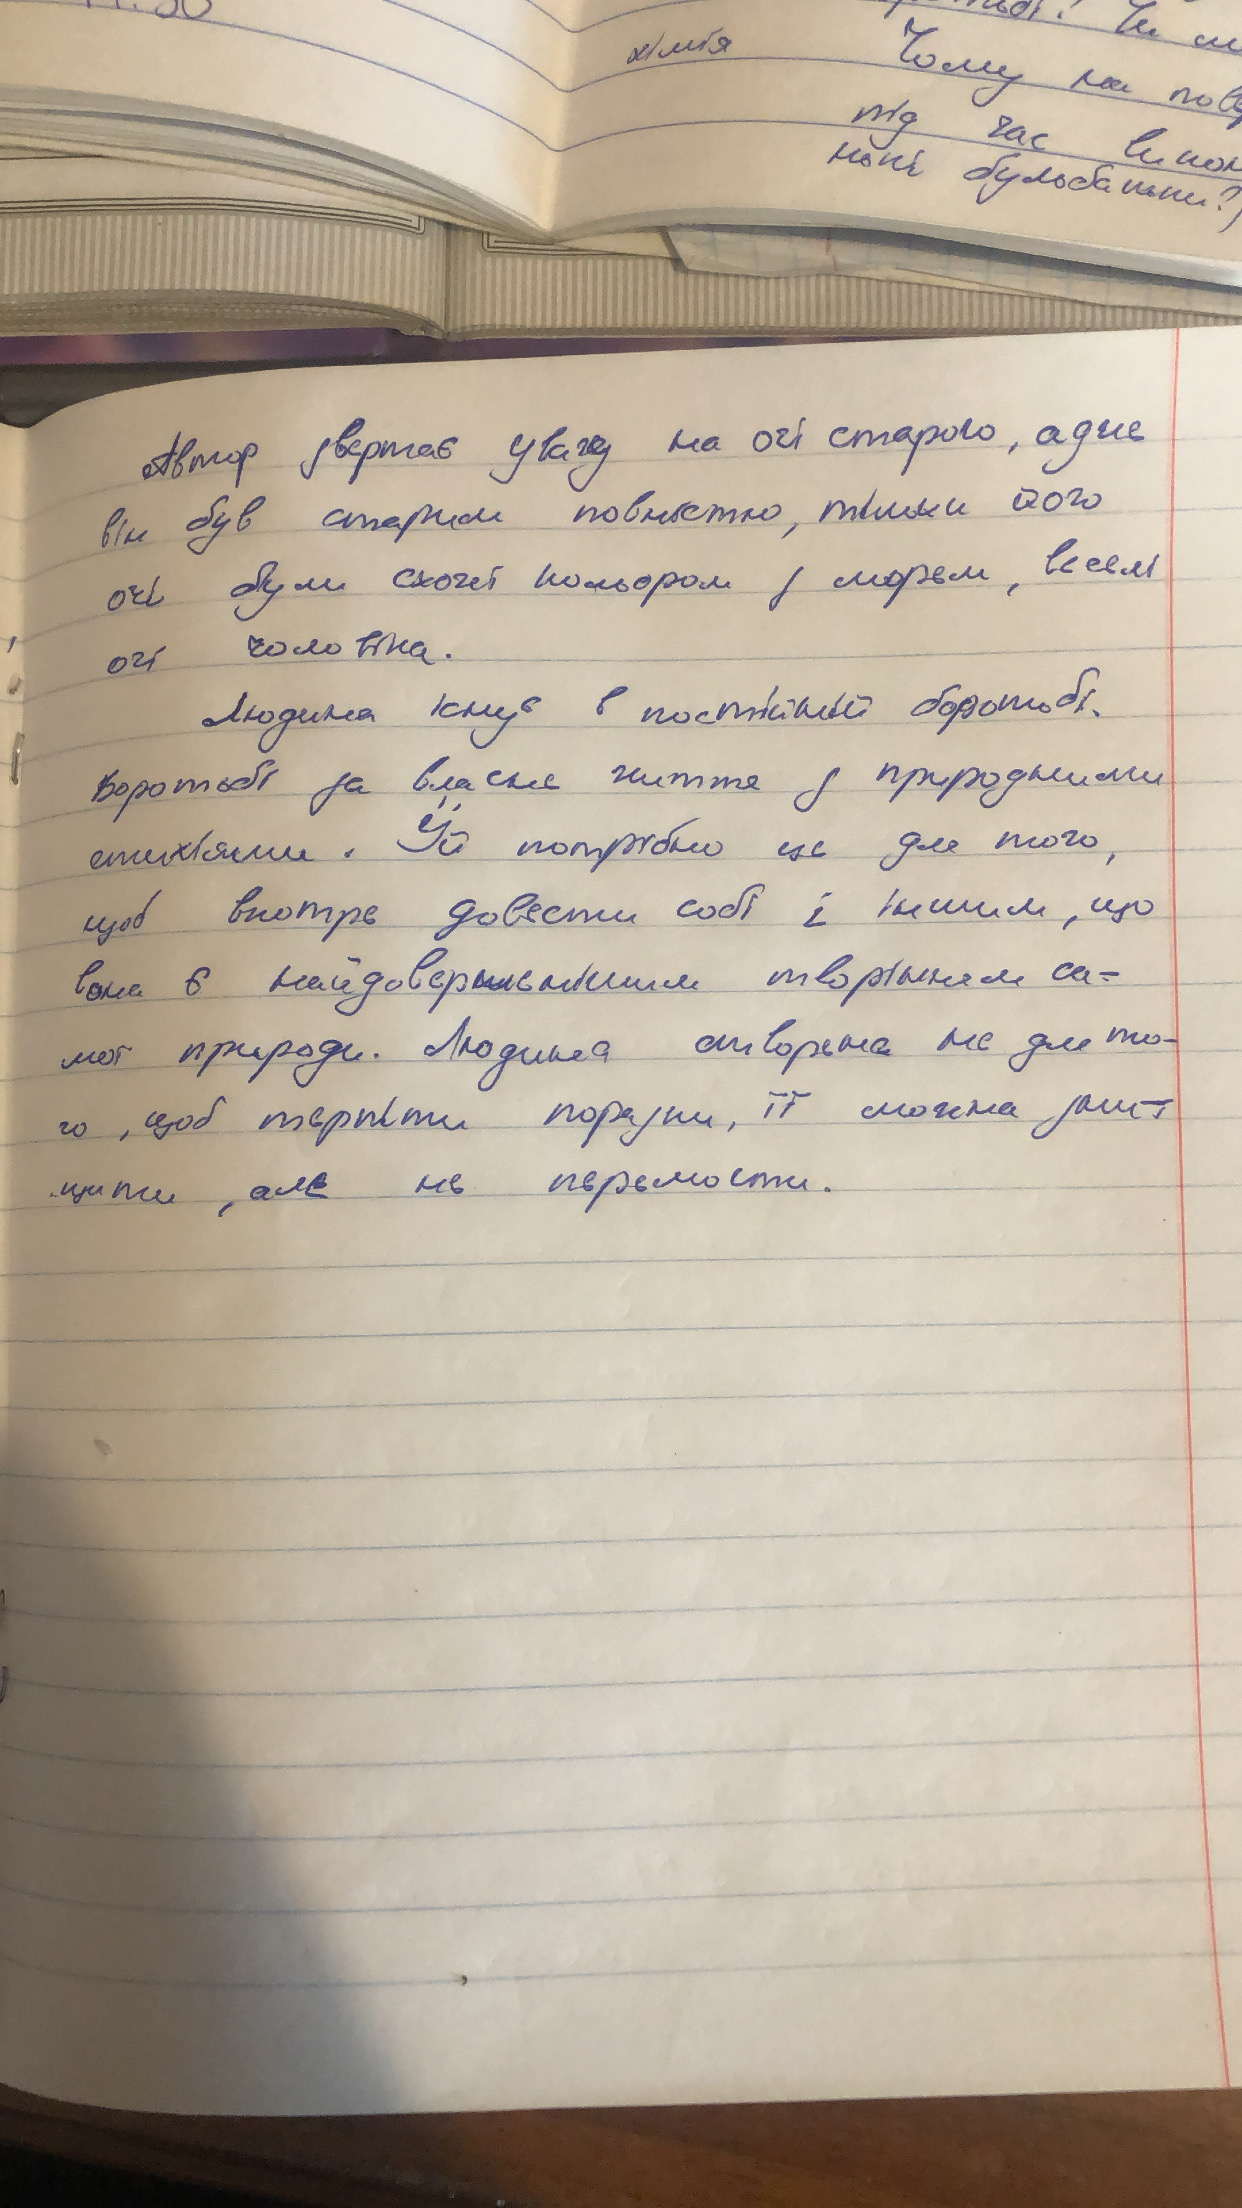 хімія
Чому на
під час
бульбашки?
Автор звертає увагу на очі старого, адже
він був старим повністю, тільки його
очі були схожі кольором з морем, веселі
очі чоловіка.
Людина існує в постійній боротьбі.
Боротьбі за власне життя з природними
стихіями. Їй потрібно це для того,
щоб вкотре довести собі і іншим, що
вона є найдовершенішим творінням са-
мої природи. Людина створена не для то-
го, щоб терпіти поразки, її можна зни-
щити, але не перемогти.